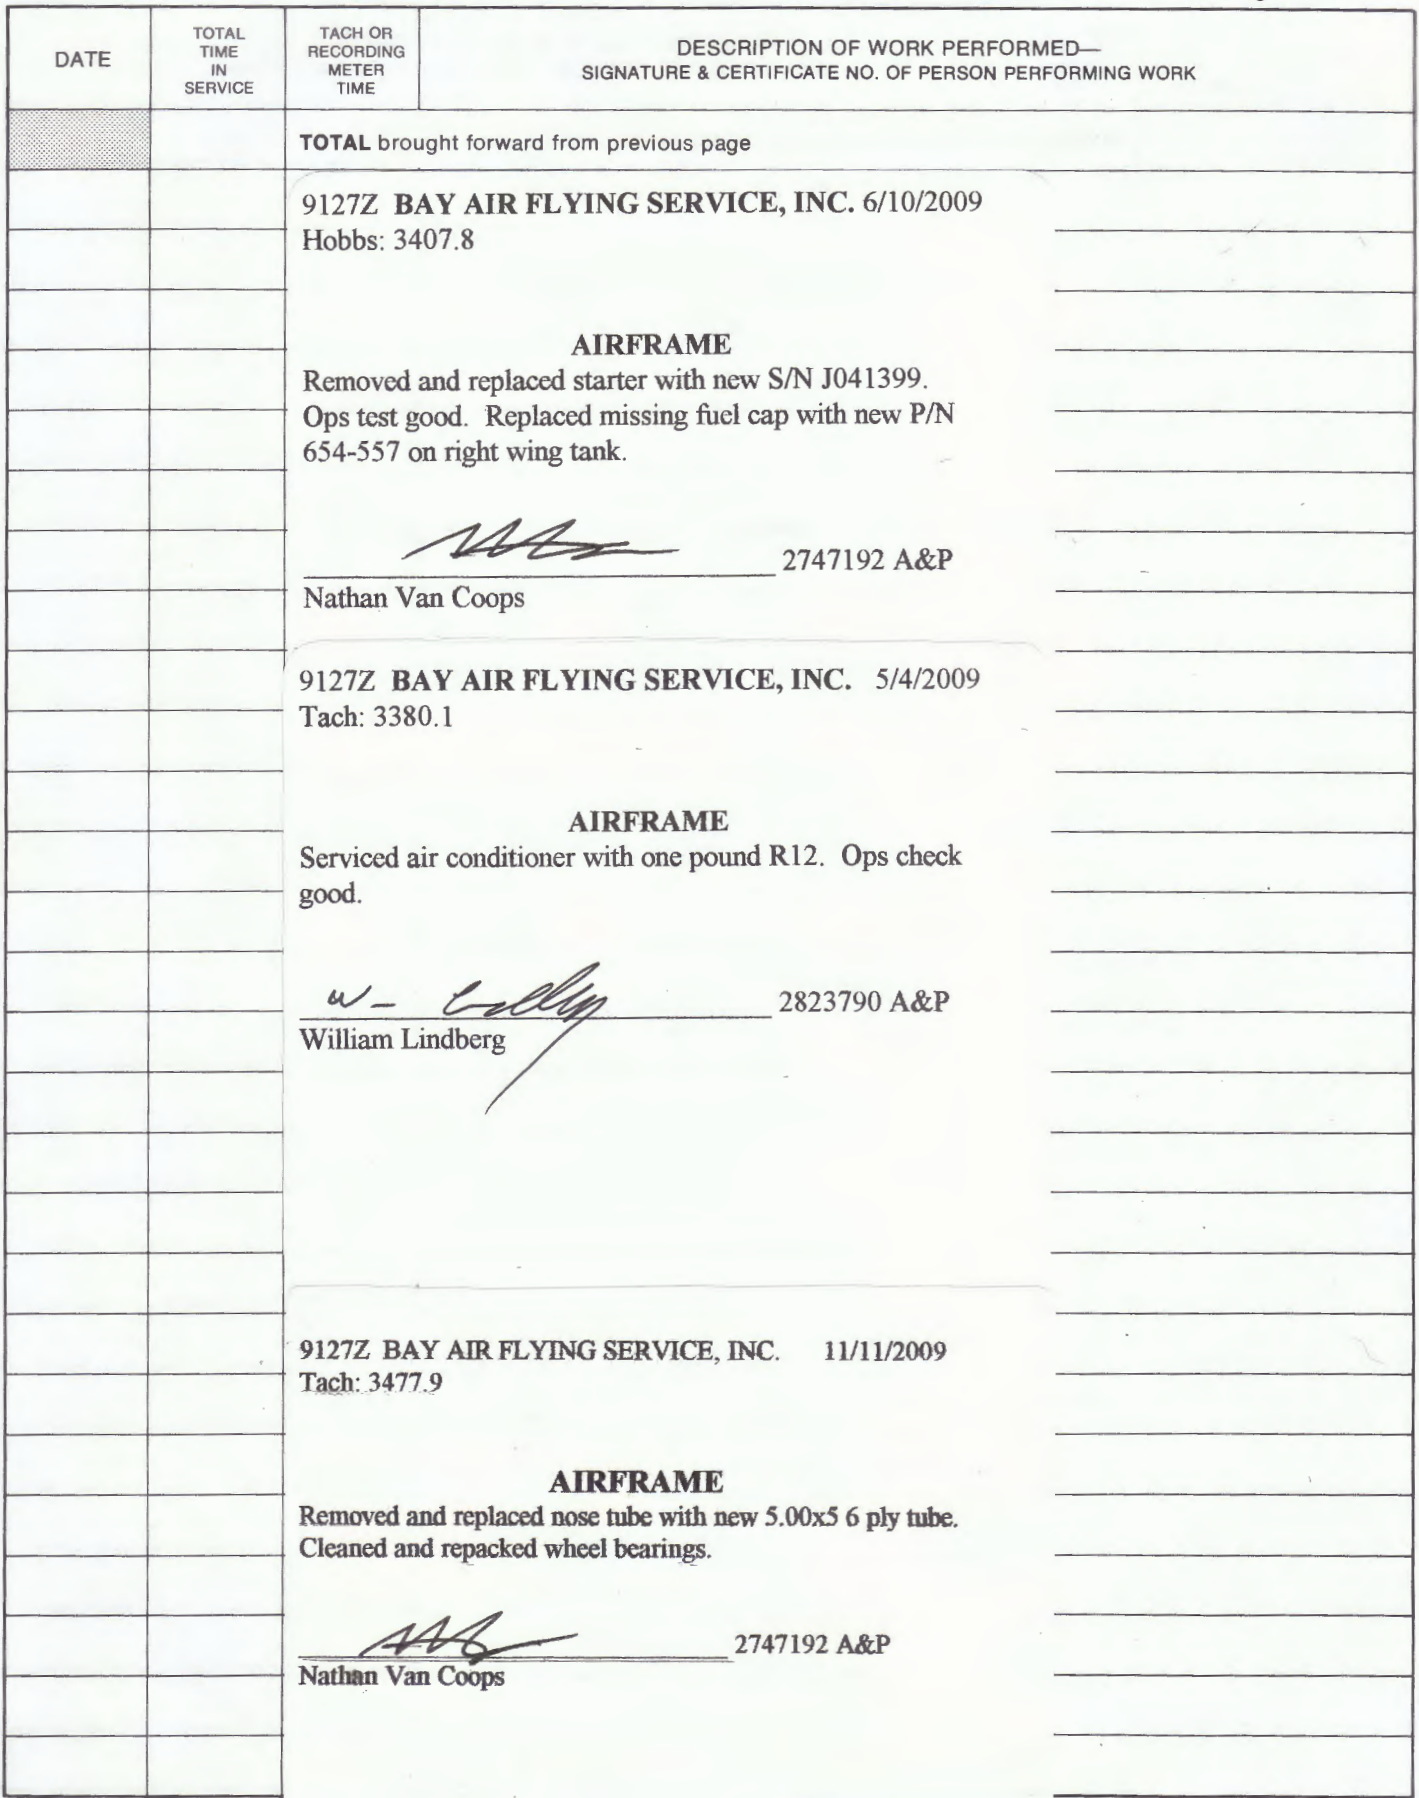 DATE
TOTAL
TIME
IN
SERVICE
TACH OR
RECORDING
METER
TIME
DESCRIPTION OF WORK PERFORMED—
SIGNATURE & CERTIFICATE NO. OF PERSON PERFORMING WORK
TOTAL brought forward from previous page
9127Z BAY AIR FLYING SERVICE, INC. 6/10/2009
Hobbs: 3407.8
AIRFRAME
Removed and replaced starter with new S/N J041399.
Ops test good. Replaced missing fuel cap with new P/N
654-557 on right wing tank.
2747192 A&P
Nathan Van Coops
9127Z BAY AIR FLYING SERVICE, INC. 5/4/2009
Tach: 3380.1
AIRFRAME
Serviced air conditioner with one pound R12. Ops check
good.
2823790 A&P
William Lindberg
9127Z BAY AIR FLYING SERVICE, INC. 11/11/2009
Tach: 3477.9
AIRFRAME
Removed and replaced nose tube with new 5.00x5 6 ply tube.
Cleaned and repacked wheel bearings.
2747192 A&P
Nathan Van Coops